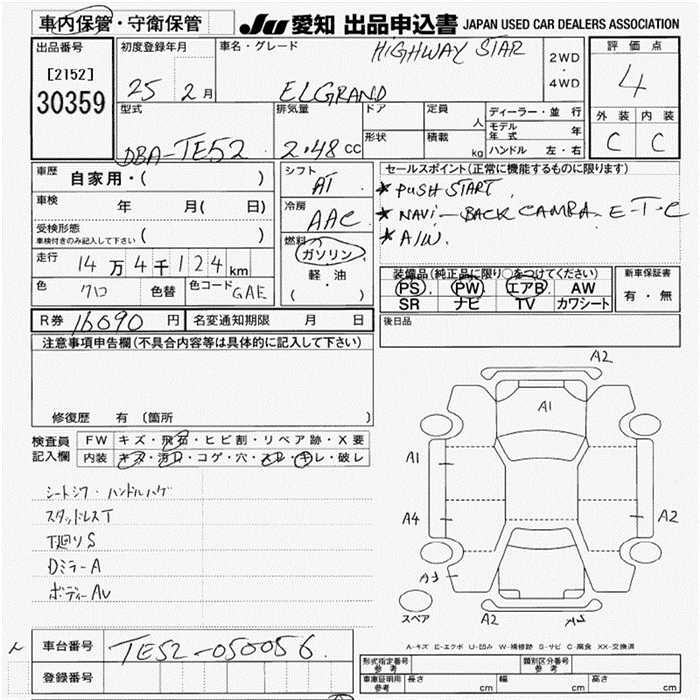 車内保管・守衛保管 JU 愛知 出品申込書 JAPAN USED CAR DEALERS ASSOCIATION
出品番号 初度登録年月 車名・グレード HIGHWAY STAR 2WD・4WD 評価点
[2152] 25 2月 ELGRAND 4
30359
型式 排気量 ドア 定員 人 ディーラー・並行 外装 内装
DBA-TE52 2.48cc 形状 積載 kg モデル年式 年 C C
ハンドル 左・右
車歴 自家用・( ) シフト AT セールスポイント(正常に機能するものに限ります)
車検 年 月( 日) 冷房 AAC ★PUSH START
受検形態 ( ) ★NAVI-BACK CAMRA. E-T-C
車検付きのみ記入して下さい 燃料 ★A/W.
走行 14万4千124km ガソリン
軽油
( )
色 クロ 色替 色コード GAE
装備品(純正品に限り○をつけてください) 新車保証書
PS PW エアB AW 有・無
SR ナビ TV カワシート
R券 16090円 名変通知期限 月 日 後日品
注意事項申告欄(不具合内容等は具体的に記入して下さい)
修復歴 有 (箇所
検査員記入欄 FW キズ・飛石・ヒビ割・リペア跡・X要
内装 キズ・汚れ・コゲ・穴・スレ・キレ・破レ
シートシワ・ハンドルハゲ
スタッドレスT
下廻りS
Dミラ-A
ボディーAU
A2
A1
A1
A4 A2
A3
スペア A2
A-キズ E-エクボ U-凹み W-補修跡 S-サビ C-腐食 XX-交換済
車台番号 TE52-050056
登録番号
形式指定番号 参考 類別区分番号 参考
車庫証明用 参考 長さ cm 幅 cm 高さ cm